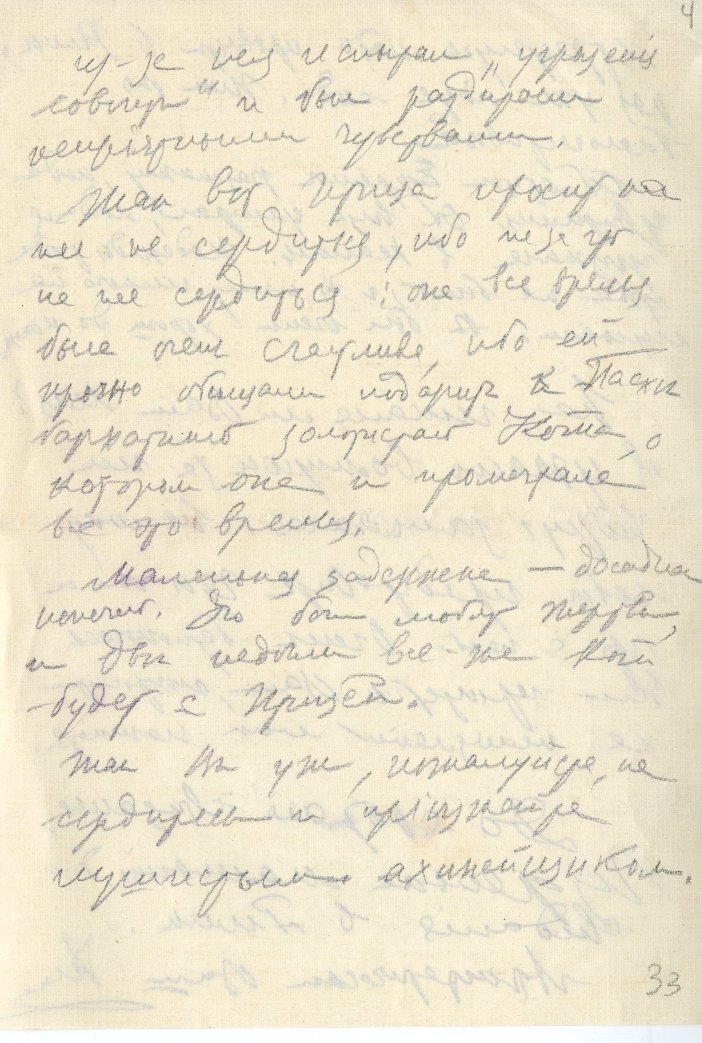 4
из-за нея испытал „угрызенія
совести" и был раздираем
непріятными чувствами.
Так вот Ириса просит на
нее не сердиться, ибо не за что
на нее сердиться: она все время
была очень счастлива, ибо ей
прочно обещали подарить к Пасхи
бархатного золотистаго Кота, о
котором она и промечтала
все это время.
Маленькая задержка — досадна
конечно. Но боги любят жертвы,
и две недели все же Кот
будет с Ирисей.
Так Вы уж, пожалуйста, не
сердитесь и пріезжайте
пушистым ахинейщиком.
33